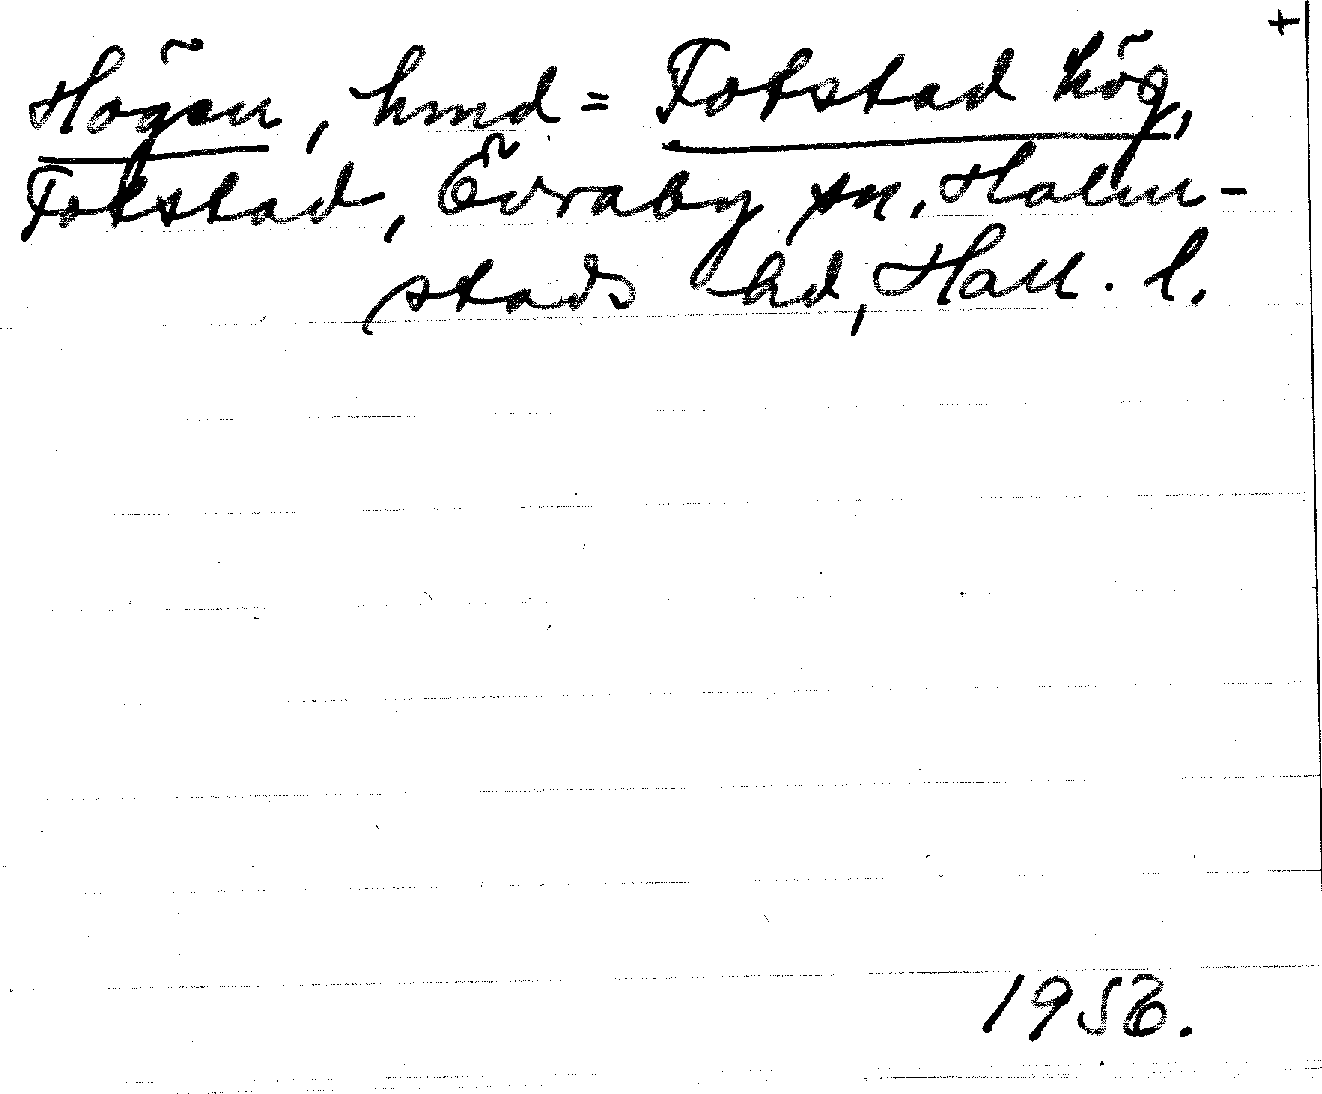 +
Högen, hmd = Fotstad hög,
Fotstad, Övraby sn, Halm-
stads hd, Hall. l.
1956.